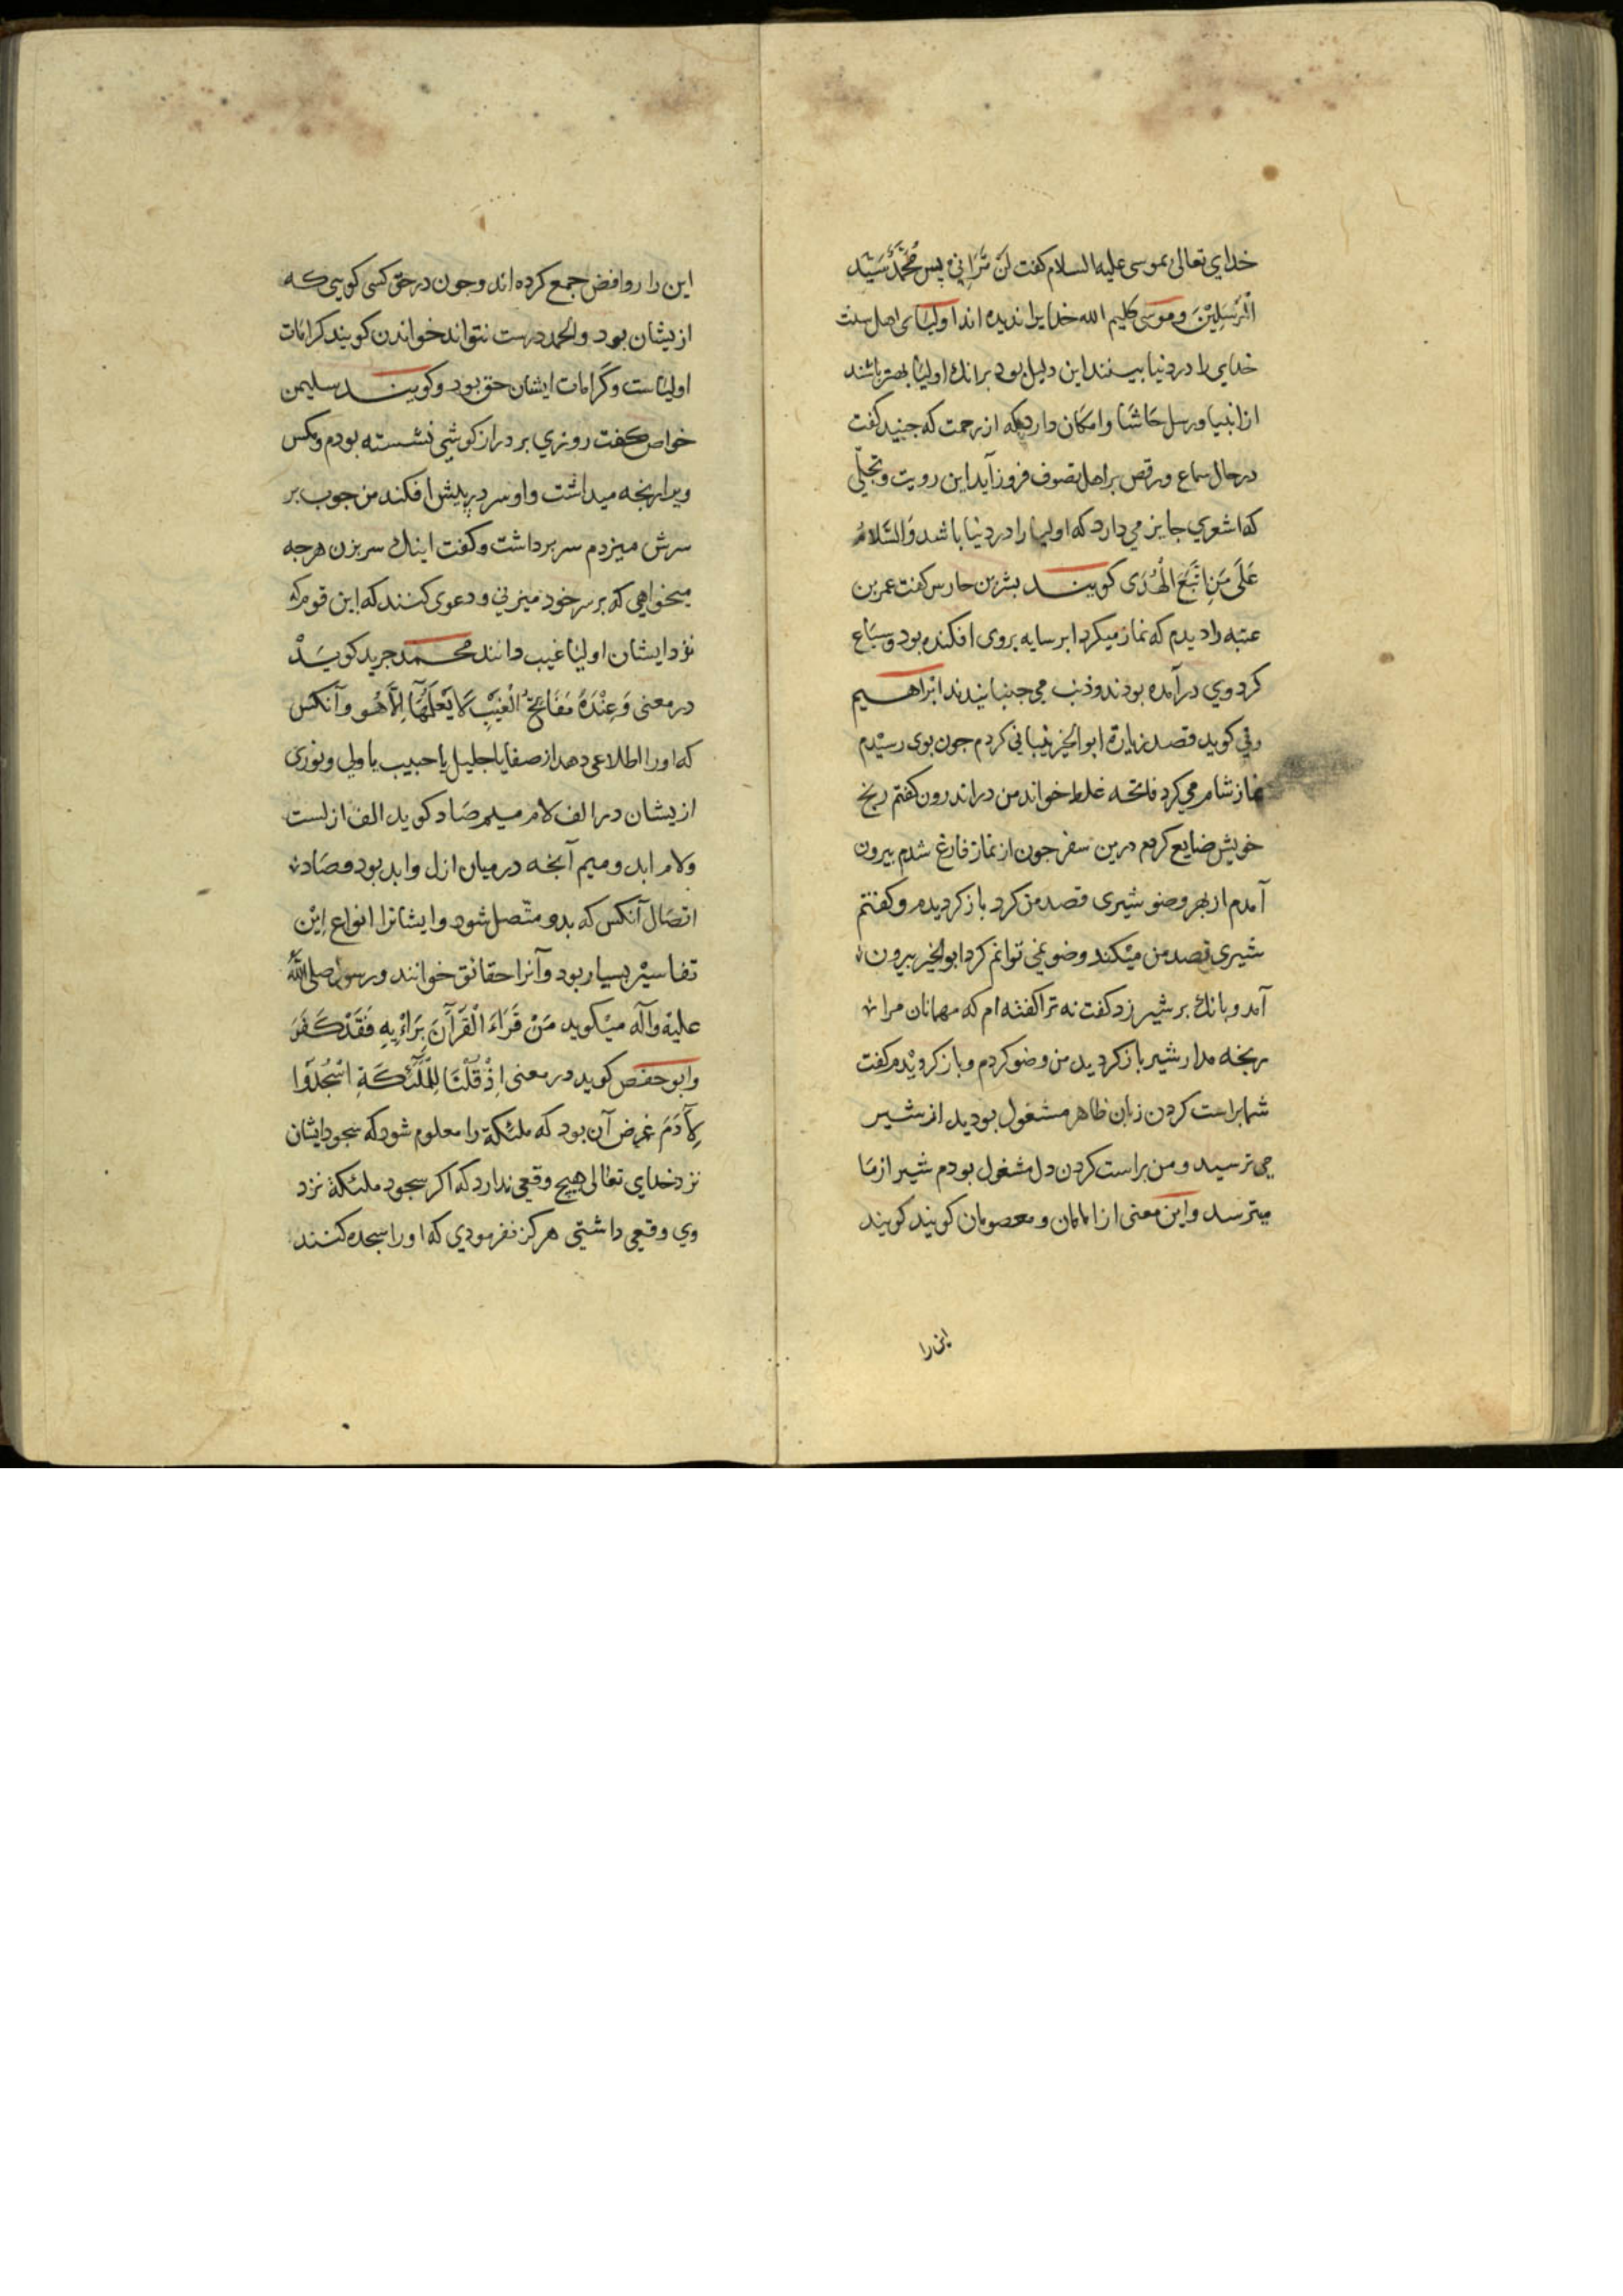 خدای تعالی بموسی علیه السلام کفت لَنْ تَرَانِی پس مُحَمَّدْ سَیّد
الْمُرْسَلِیْنَ و موسی کلیم الله خدایرا ندیده اند اولیَای اهل سنت
خدایی را در دنیا بینند این دلیل بود برانك اولیَا بهتر باشند
از انبیا و رسل حَاشَا و امکان دارد که از رحمت که جنید کفت
در حال سماع و رقص بر اهل تصوف فروز آید این رویت و تجلّی
که اشعری جایز می دارد که اولیا را در دنیا باشد وَالسَّلامُ
عَلَی مَنِ اتَّبَعَ الْهُدَی کویند بشر بن حارس کفت عمر بن
عتبه را دیدم که نماز میکرد ابر سایه بروی افکنده بود و سبَاع
کرد وی در آمده بودند و ذنب می جنبانیدند ابراهیم
رقی کوید قصد زیارة ابو الخیر تیناتی کردم جون بوی رسیدم
نماز شام می کرد فاتحه غلط خواند من در اندرون کفتم رنج
خویش ضایع کردم درین سفر جون از نماز فارغ شدم بیرون
آمدم از بهر وضو شیری قصد من کرد باز کردیدم و کفتم
شیری قصد من میکند وضو نمی توانم کرد ابو الخیر بیرون
آمد و بانك بر شیر زد کفت نه ترا کفته ام که مهمانان مرا
رنجه مدار شیر باز کردید من وضو کردم و باز کردیدم کفت
شما براست کردن زبان ظاهر مشغول بودید از شیر
می ترسید و من براست کردن دل مشغول بودم شیر از مَا
میترسد و این معنی از امامان و معصومان کویند کویند
این را
این را روافض جمع کرده اند و جون در حق کسی کویی که
ازیشان بود و الحمد درست نتواند خواندن کویند کرامَات
اولیاست و کرَامات ایشان حق بود و کویند سلیمن
خواص کفت روزی بر دراز کوشی نشسته بودم و مکس
ویرا رنجه میداشت و او سر در پیش افکند من جوب بر
سرش میزدم سر برداشت و کفت اینك سر بزن هرجه
میخواهی که بر سر خود میزنی و دعوی کنند که این قوم که
نزد ایشان اولیَا غیب دانند محمد جریر کویَدْ
در معنی وَعِنْدَهُ مَفَاتِحُ الْغَیْبِ لَا یَعْلَمُهَا اِلَّا هُو و آنکس
که او را اطلاعی دهد از صفایا جلیل یا حبیب یا ولی و نوری
ازیشان در الف لام میم صَاد کوید الف ازلست
و لام ابد و میم آنجه در میان ازل و ابد بود و صَاد
اتصَال آنکس که بدو متّصل شود و ایشانرا انواع این
تفاسیر بسیار بود و آنرا حقائق خوانند و رسول صلی الله
علیه و آله میکوید مَنْ قَرَاءَ الْقُرْآنَ بِرَاءْیِهِ فَقَدْ کَفَرَ
و ابو حفص کوید در معنی اِذْ قُلْنَا لِلْمَلَٓئِکَةِ اسْجُدُوا
لِآدَمَ غرض آن بود که ملئکة را معلوم شود که سجود ایشان
نزد خدای تعالی هیچ وقعی ندارد که اکر سجود ملئکة نزد
وی وقعی داشتی هرکز نفرمودی که او را سجده کنند